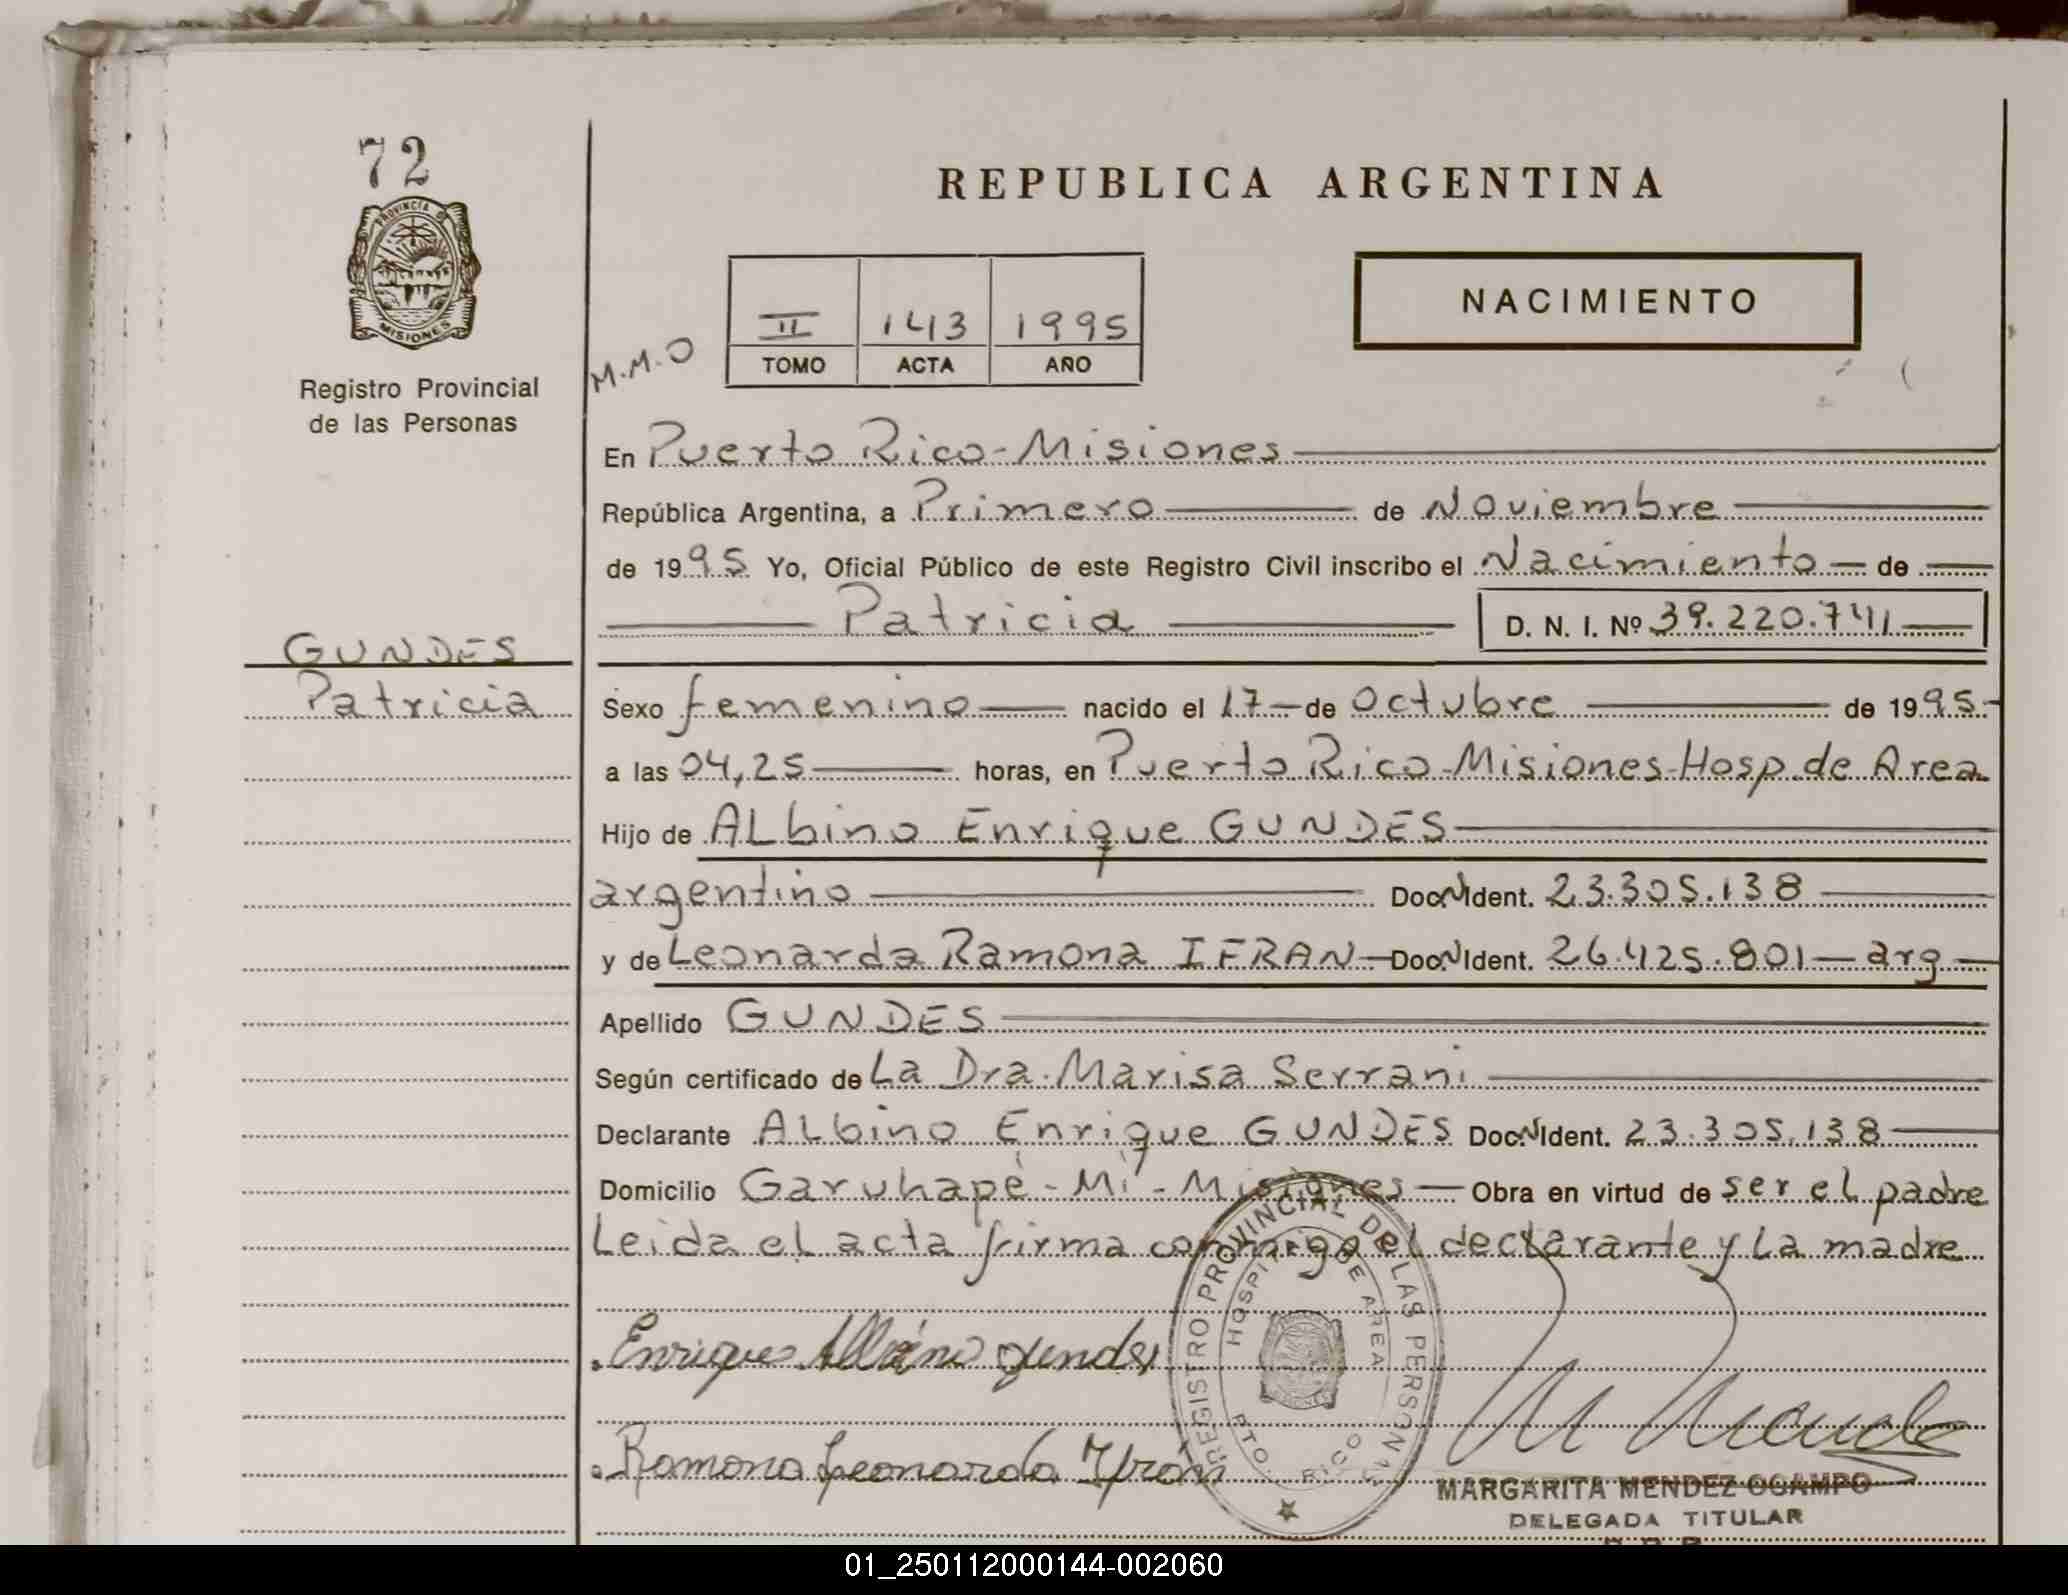 72
PROVINCIA D
MISIONES
Registro Provincial
de las Personas
REPUBLICA ARGENTINA
NACIMIENTO
II 143 1995
TOMO ACTA AÑO
M.M.O
En Puerto Rico - Misiones
República Argentina, a Primero de Noviembre
de 1995 Yo, Oficial Público de este Registro Civil inscribo el Nacimiento de
Patricia D. N. I. Nº 39.220.741
GUNDES
Patricia
Sexo femenino nacido el 17 de octubre de 1995
a las 04,25 horas, en Puerto Rico - Misiones - Hosp. de Area
Hijo de ALbino Enrique GUNDES
argentino Doc. N Ident. 23.305.138
y de Leonarda Ramona IFRAN Doc. N Ident. 26.425.801 - arg
Apellido GUNDES
Según certificado de La Dra. Marisa Serrani
Declarante ALbino Enrique GUNDES Doc. N Ident. 23.305.138
Domicilio Garuhapé - Mí - Misiones Obra en virtud de ser el padre
Leida el acta firma conmigo el declarante y La madre
Enrique Albino gundes
Ramona Leonarda Ifrán
REGISTRO PROVINCIAL DE LAS PERSONAS
HOSPITAL DE AREA
PTO. RICO
MARGARITA MENDEZ OCAMPO
DELEGADA TITULAR
01_250112000144-002060